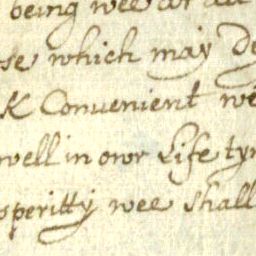 being wee
se which may De
K Convenient we
well in owr Life tym
osperitty wee shall